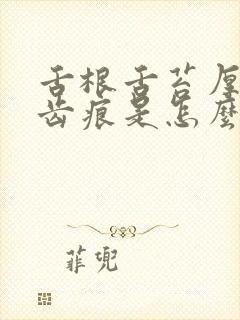 舌根舌苔厚
齿痕是怎麼
菲兜